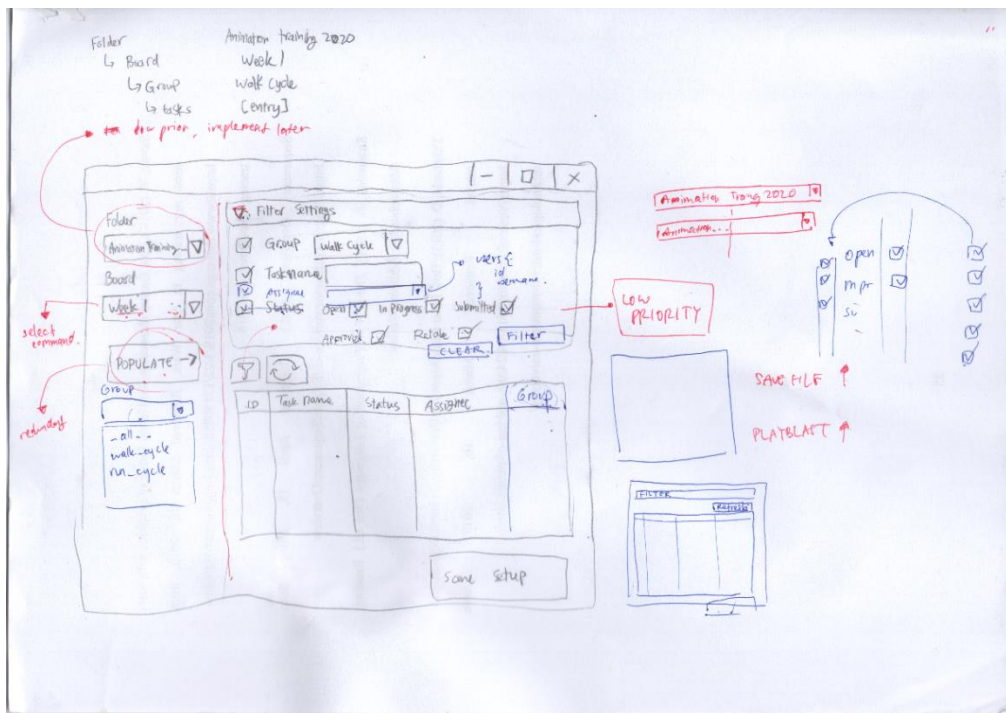 Folder Animation training 2020
↳ Board Week 1
↳ Group Walk Cycle
↳ tasks [entry]
low prior, implement later
Folder
Animation Training
Board
Week 1
select command.
POPULATE →
redundant
Group
_all_
walk_cycle
run_cycle
Filter Settings
Group Walk Cycle
Task name
Assignee
Status Open In progress Submitted
users {
id
}
Approved Retake Filter
CLEAR
ID Task Name Status Assignee Group
Scene Setup
Animation Traing 2020
Animation...
LOW
PRIORITY
SAVE FILE ↑
PLAYBLAST ↑
FILTER
Refresh
Open